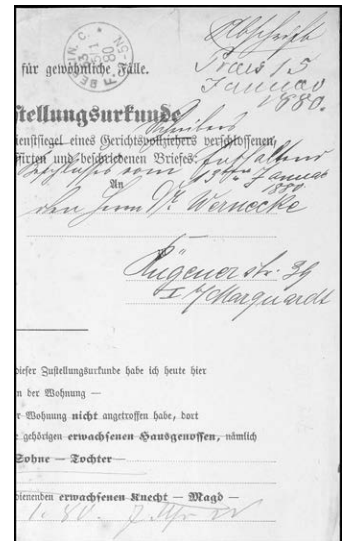 Abschrift
BERLIN. C.
Praes 15
Januar
1880.
für gewöhnliche Fälle.
stellungsurkunde
Schreibens
dienstsiegel eines Gerichtsvollziehers verschlossenen,
sirten und beschriebenen Briefes: enthaltend
Beschlusses vom 13ten Januar
1880
An
den Herrn Dr. Wernecke
Rügener str. 39
I / Marquardt
dieser Zustellungsurkunde habe ich heute hier
n der Wohnung —
r Wohnung nicht angetroffen habe, dort
gehörigen erwachsenen Hausgenossen, nämlich
Sohne — Tochter
dienenden erwachsenen Knecht — Magd —
1. 80. 7